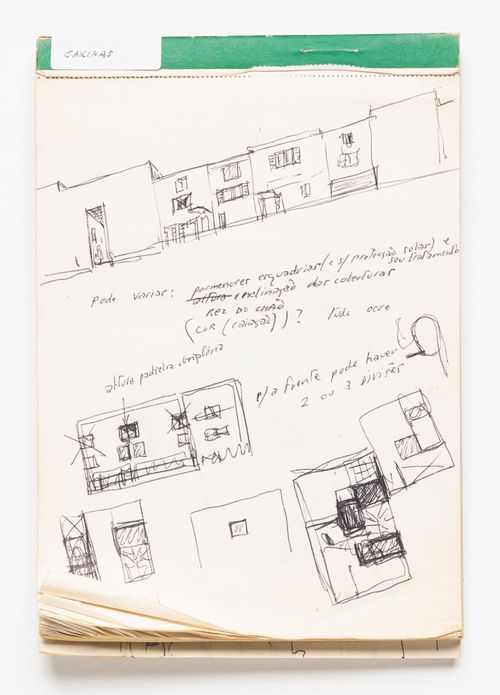 CAXINAS
Pode variar: pormenores esquadrias (e s/ protecção solar) e
seu tratamento
altura e inclinação das coberturas
REZ DO CHÃO
(COR (caiação))? Tudo ocre
altura padieira obrigatória
p/ a frente pode haver
2 ou 3 DIVISÕES